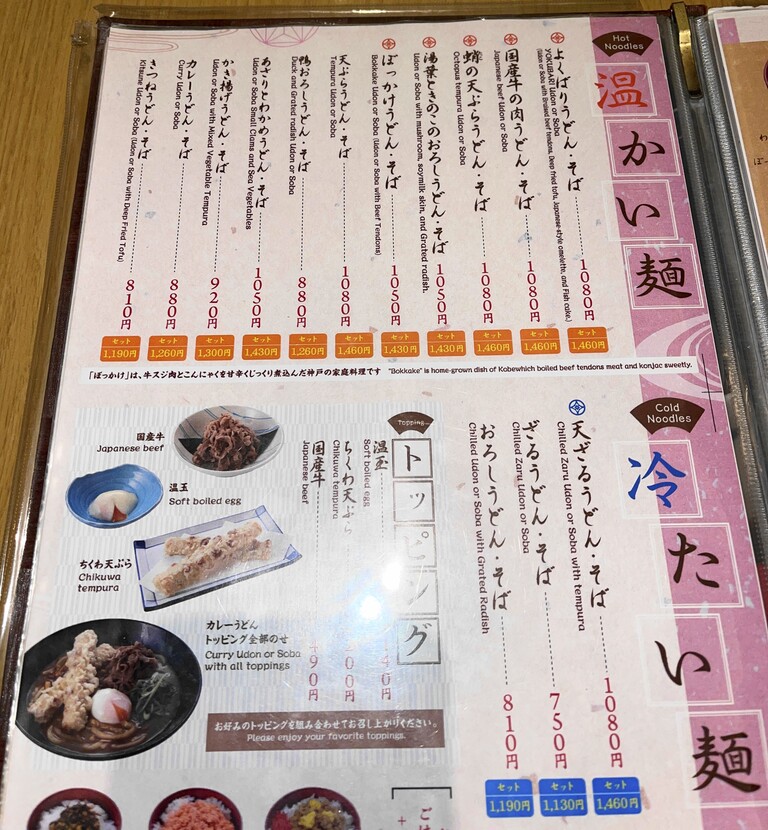 Hot
Noodles
温かい麺
よくばりうどん・そば
1080円
YOKUBARI Udon or Soba
(Udon or Soba with Braised beef tendons, Deep fried tofu, Japanese-style omelette, and Fish cake.)
セット
1,460円
国産牛の肉うどん・そば
1080円
Japanese beef Udon or Soba
セット
1,460円
蛸の天ぷらうどん・そば
1080円
Octopus tempura Udon or Soba
セット
1,460円
湯葉ときのこのおろしうどん・そば
1050円
Udon or Soba with mushroom, soymilk skin, and Grated radish.
セット
1,430円
ぼっかけうどん・そば
1050円
Bokkake Udon or Soba (Udon or Soba with Beef Tendons)
セット
1,430円
天ぷらうどん・そば
1080円
Tempura Udon or Soba
セット
1,460円
鴨おろしうどん・そば
880円
Duck and Grated radish Udon or Soba
セット
1,260円
あさりとわかめうどん・そば
1050円
Udon or Soba Small Clams and Sea Vegetables
セット
1,430円
かき揚げうどん・そば
920円
Udon or Soba with Mixed Vegetable Tempura
セット
1,300円
カレーうどん・そば
880円
Curry Udon or Soba
セット
1,260円
きつねうどん・そば
810円
Kitsune Udon or Soba (Udon or Soba with Deep Fried Tofu)
セット
1,190円
「ぼっかけ」は、牛スジ肉とこんにゃくを甘辛くじっくり煮込んだ神戸の家庭料理です "Bokkake" is home-grown dish of Kobewhich boiled beef tendons meat and konjac sweetly.
Cold
Noodles
冷たい麺
天ざるうどん・そば
1080円
Chilled Zaru Udon or Soba with tempura
セット
1,460円
ざるうどん・そば
750円
Chilled Zaru Udon or Soba
セット
1,130円
おろしうどん・そば
810円
Chilled Udon or Soba with Grated Radish
セット
1,190円
Topping
トッピング
温玉
Soft boiled egg
140円
ちくわ天ぷら
Chikuwa tempura
00円
国産牛
Japanese beef
490円
国産牛
Japanese beef
温玉
Soft boiled egg
ちくわ天ぷら
Chikuwa
tempura
カレーうどん
トッピング全部のせ
Curry Udon or Soba
with all toppings
お好みのトッピングを組み合わせてお召し上がりください。
Please enjoy your favorite toppings.
ごは